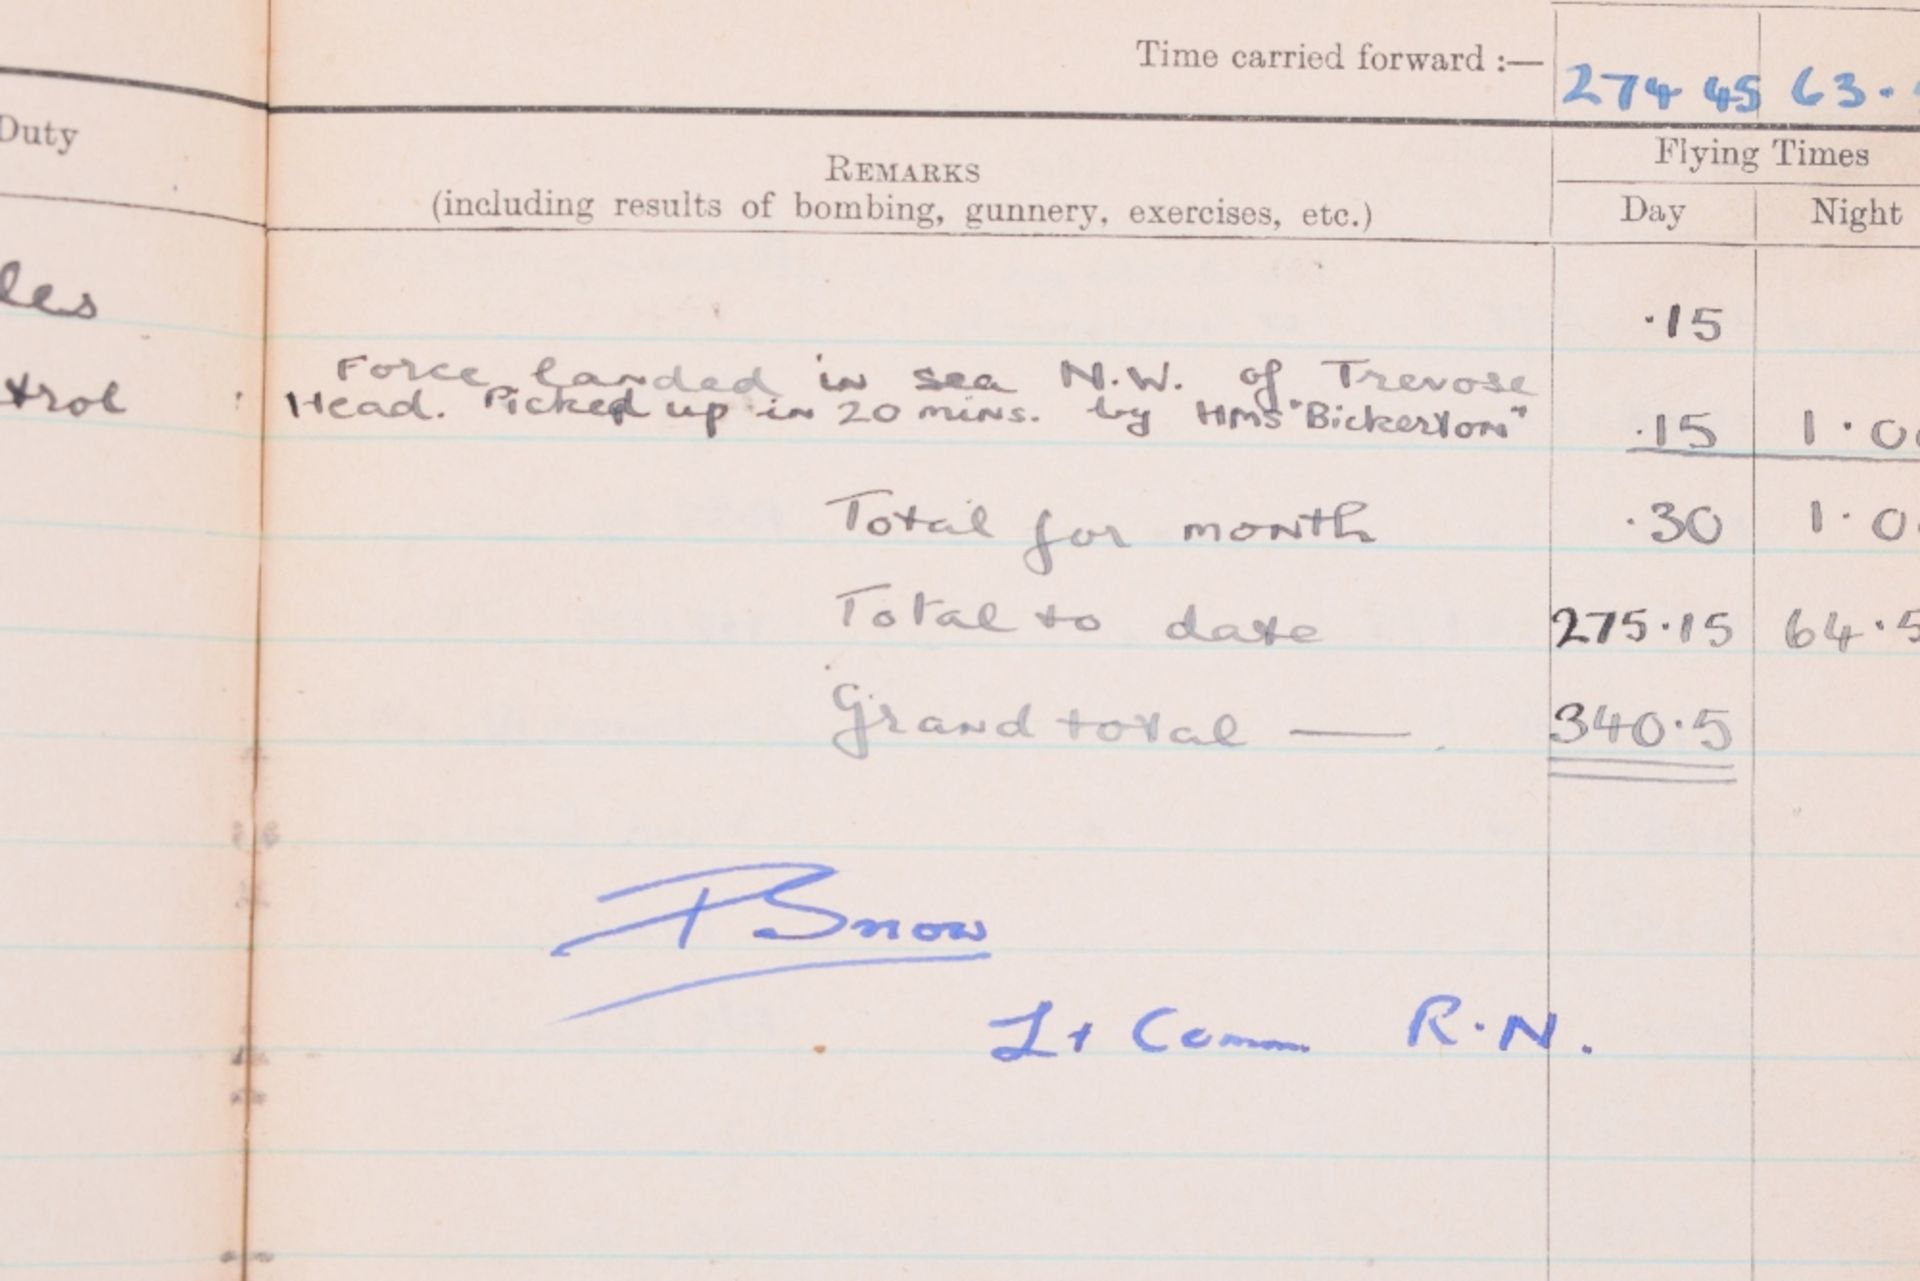 Time carried forward :—
274 45 63·
Duty
REMARKS
(including results of bombing, gunnery, exercises, etc.)
Flying Times
Day Night
les
·15
trol
Force landed in sea N.W. of Trevose
Head. Picked up in 20 mins. by HMS "Bickerton"
·15 1·0
Total for month ·30 1·0
Total to date 275·15 64·5
Grand total — 340·5
P Snow
Lt Comm R.N.